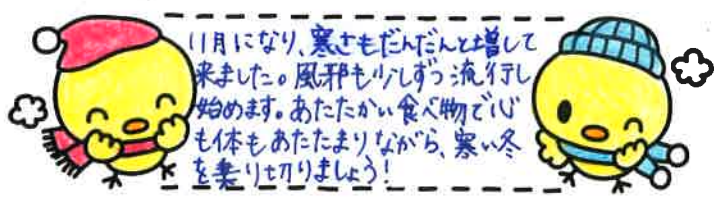 11月になり、寒さもだんだんと増して
来ました。風邪も少しずつ流行し
始めます。あたたかい食べ物で心
も体もあたたまりながら、寒い冬
を乗り切りましょう!